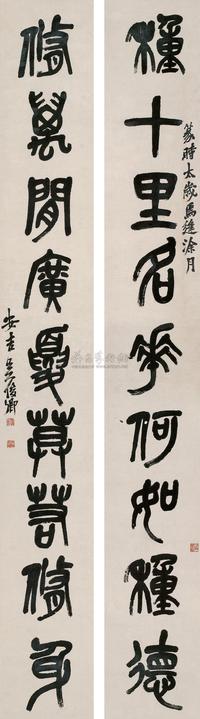 種十里名花何如種德
篆時太歲馬逢涂月
脩萬閒廣廈莫若脩身
安吉吳俊卿